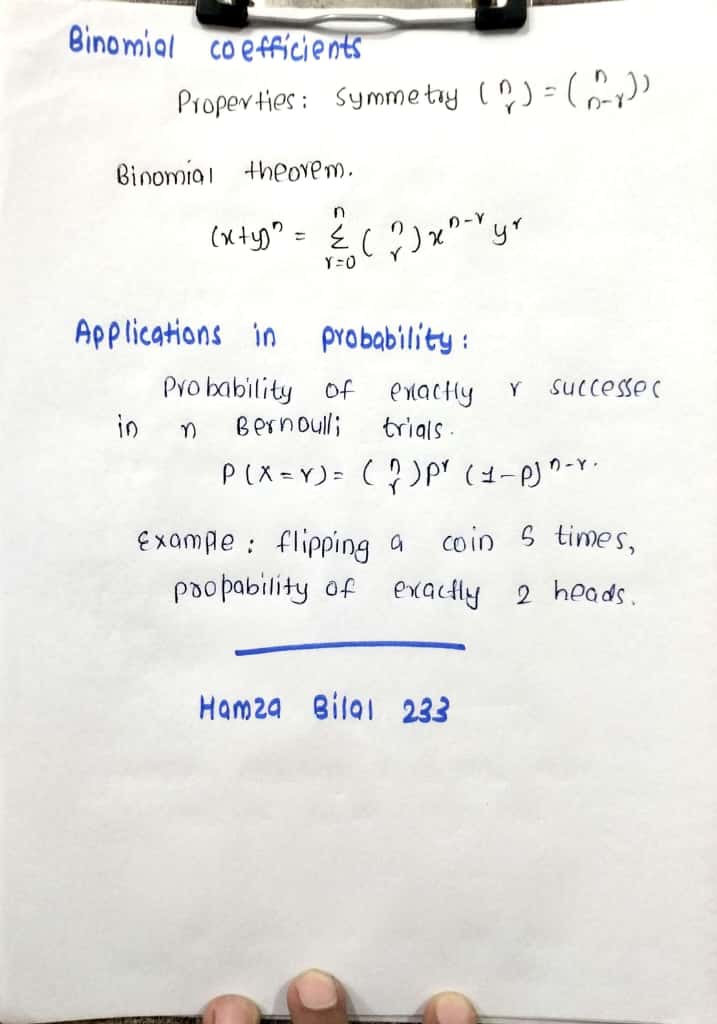 Binomial coefficients
Properties: symmetry (n r) = (n n-r))
Binomial theorem.
(x+y)^n = Σ_{r=0}^{n} (n r) x^{n-r} y^r
Applications in probability:
Probability of exactly r successes
in n Bernoulli trials.
P(X=r) = (n r) p^r (1-p)^{n-r}.
Example: flipping a coin 5 times,
poopability of exactly 2 heads.
Hamza Bilal 233